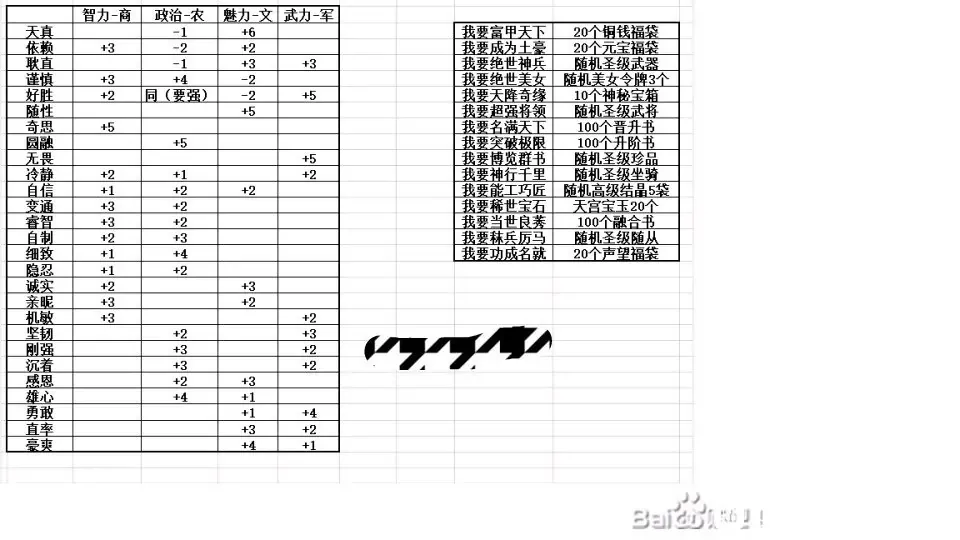 智力-商 政治-农 魅力-文 武力-军
天真 -1 +6
依赖 +3 -2 +2
耿直 -1 +3 +3
谨慎 +3 +4 -2
好胜 +2 同（要强） -2 +5
随性 +5
奇思 +5
圆融 +5
无畏 +5
冷静 +2 +1 +2
自信 +1 +2 +2
变通 +3 +2
睿智 +3 +2
自制 +2 +3
细致 +1 +4
隐忍 +1 +2
诚实 +2 +3
亲昵 +3 +2
机敏 +3 +2
坚韧 +2 +3
刚强 +3 +2
沉着 +3 +2
感恩 +2 +3
雄心 +4 +1
勇敢 +1 +4
直率 +3 +2
豪爽 +4 +1
我要富甲天下 20个铜钱福袋
我要成为土豪 20个元宝福袋
我要绝世神兵 随机圣级武器
我要绝世美女 随机美女令牌3个
我要天降奇缘 10个神秘宝箱
我要超强将领 随机圣级武将
我要名满天下 100个晋升书
我要突破极限 100个升阶书
我要博览群书 随机圣级珍品
我要神行千里 随机圣级坐骑
我要能工巧匠 随机高级结晶5袋
我要稀世宝石 天宫宝玉20个
我要当世良莠 100个融合书
我要秣兵厉马 随机圣级随从
我要功成名就 20个声望福袋